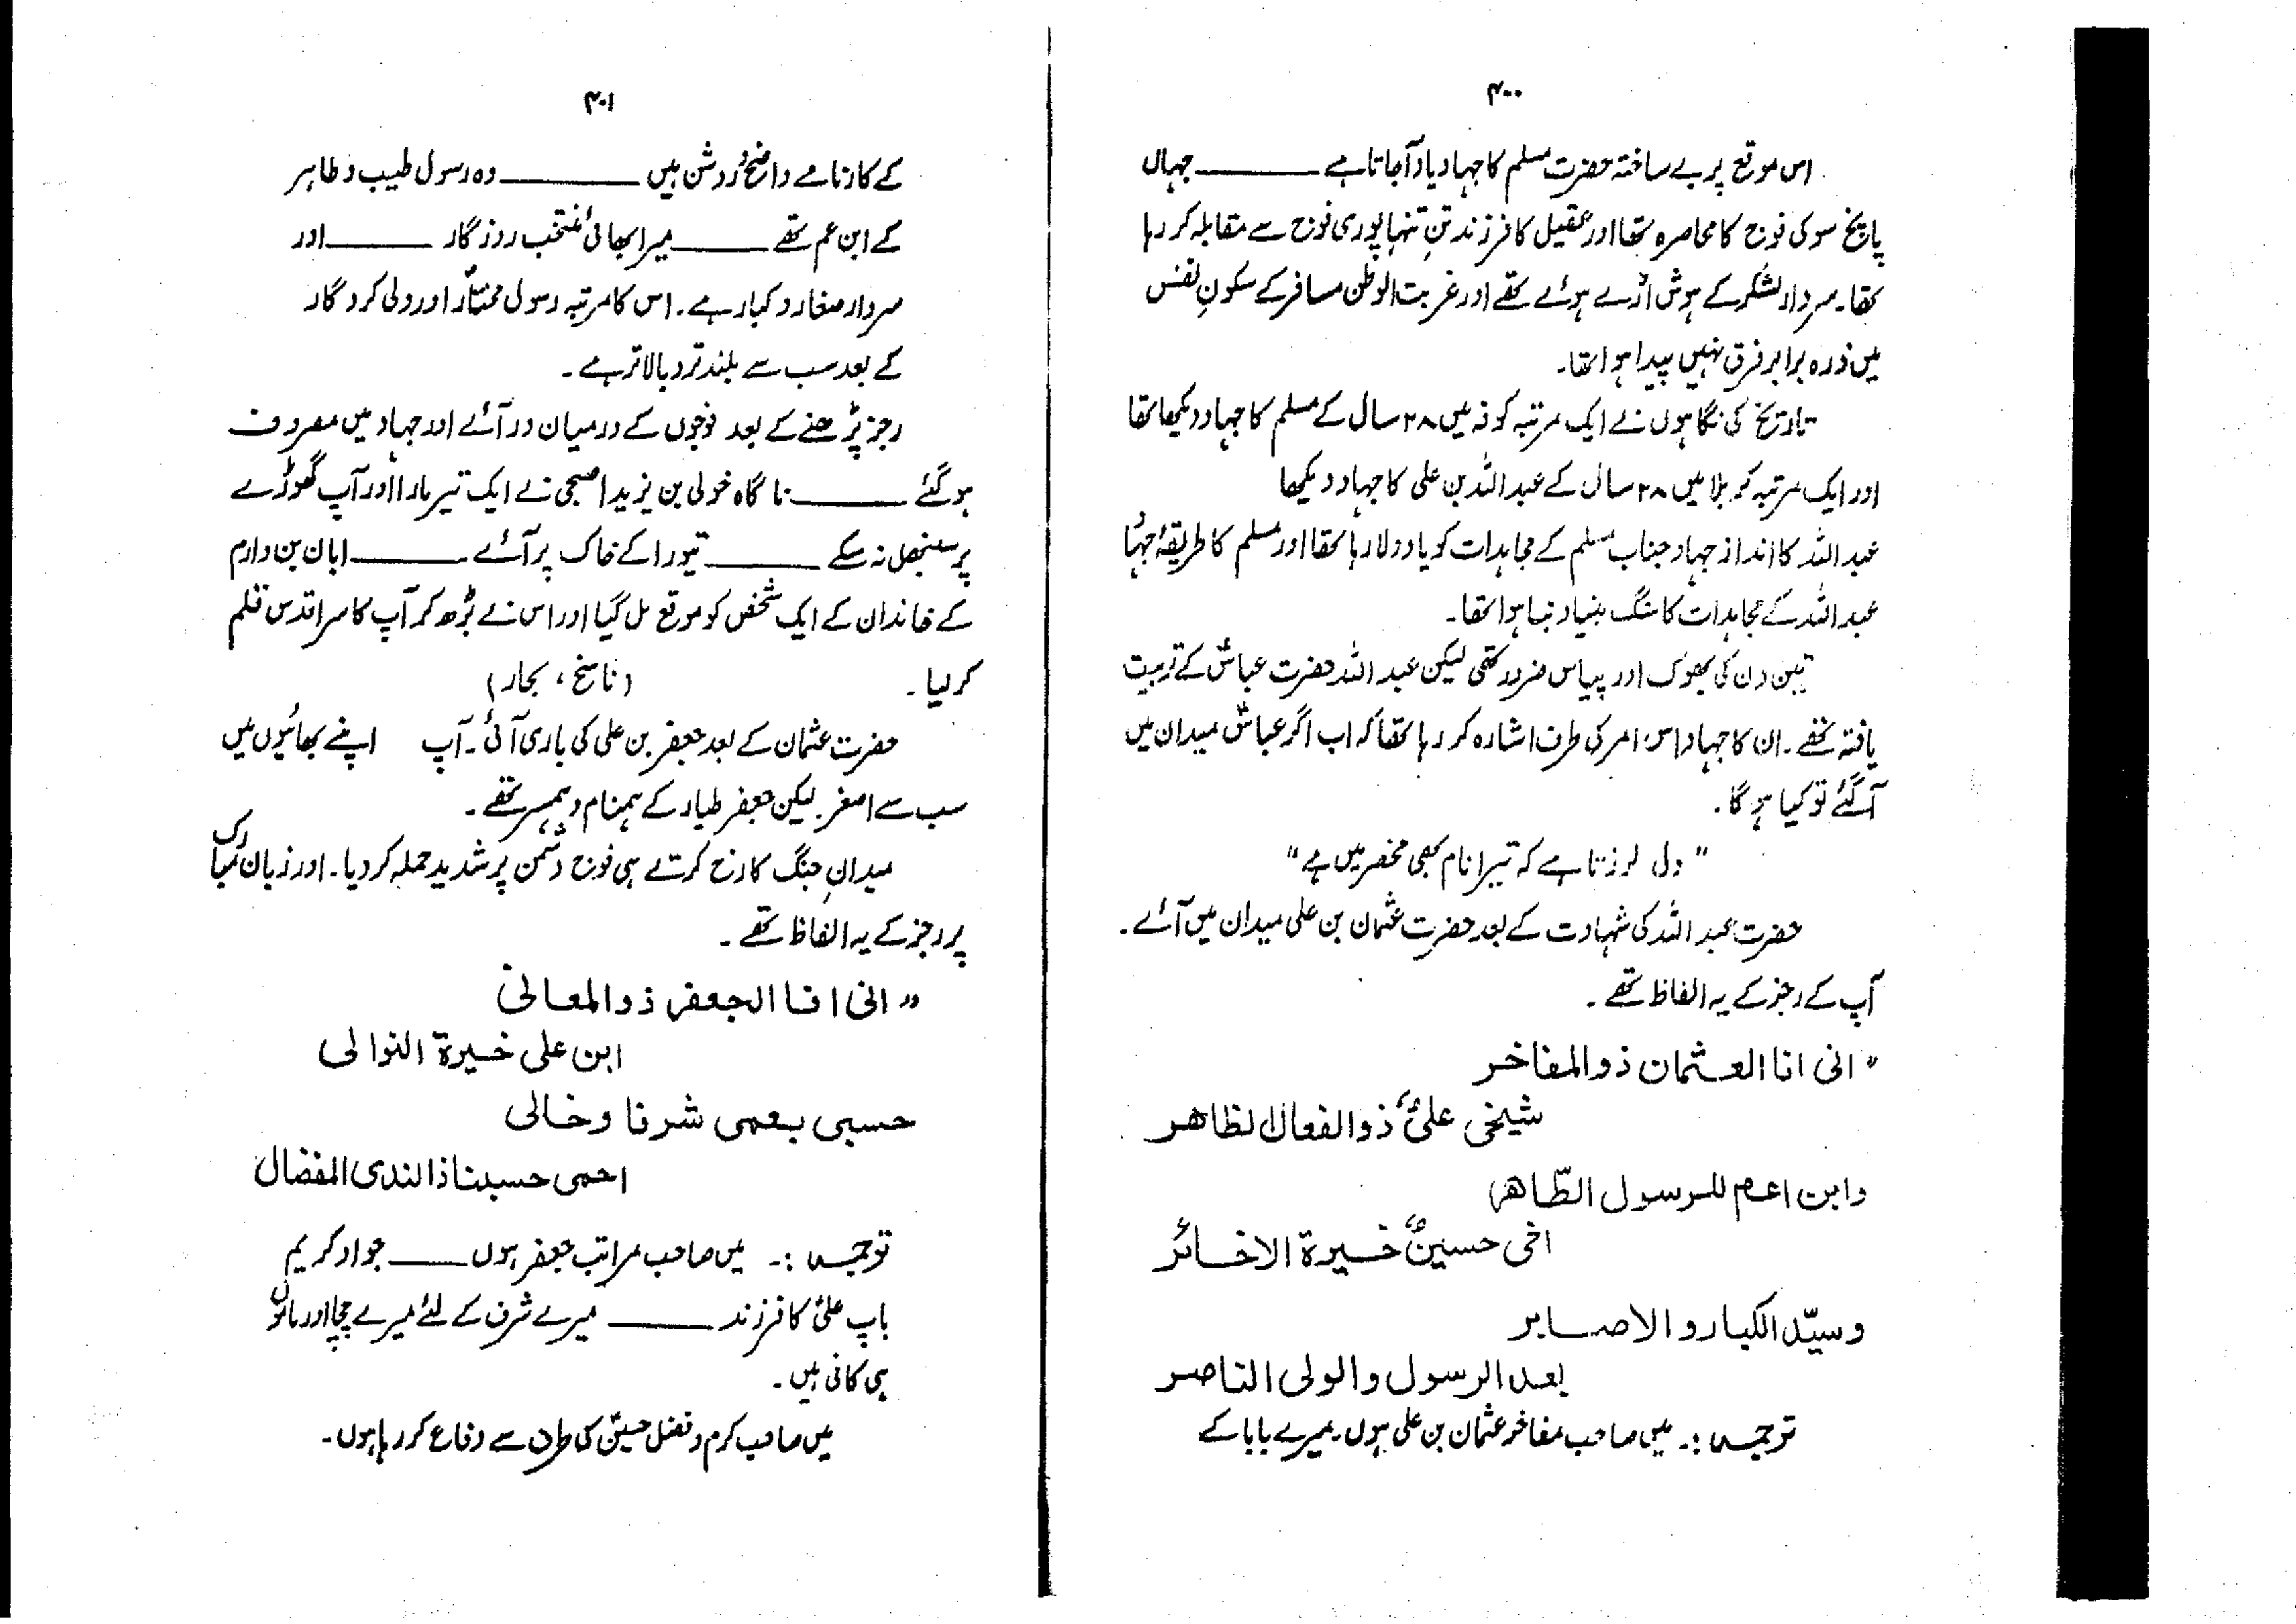 ۴۰۰
اس موقع پر بے ساختہ حضرت مسلم کا جہاد یاد آجاتا ہے ــــــــ جہاں
پانچ سو کی فوج کا محاصرہ تھا اور عقیل کا فرزند تنِ تنہا پوری فوج سے مقابلہ کر رہا
تھا۔ سردار لشکر کے ہوش اڑے ہوئے تھے اور غریب الوطن مسافر کے سکونِ نفس
میں ذرہ برابر فرق نہیں پیدا ہوا تھا۔
تاریخ کی نگاہوں نے ایک مرتبہ کوفہ میں ۲۸ سال کے مسلم کا جہاد دیکھا تھا
اور ایک مرتبہ کربلا میں ۲۸ سال کے عبد اللہ بن علی کا جہاد دیکھا
عبد اللہ کا انداز جہاد جناب مسلم کے مجاہدات کو یاد دلا رہا تھا اور مسلم کا طریقۂ جہاد
عبد اللہ کے مجاہدات کا سنگ بنیاد بنا ہوا تھا۔
تین دن کی بھوک اور پیاس ضرور تھی لیکن عبد اللہ حضرت عباسؑ کے تربیت
یافتہ تھے۔ ان کا جہاد اس امر کی طرف اشارہ کر رہا تھا کہ اب اگر عباسؑ میدان میں
آگئے تو کیا ہو گا۔
" دل لرزتا ہے کہ تیرا نام بھی محضر میں ہے "
حضرت عبد اللہ کی شہادت کے بعد حضرت عثمان بن علی میدان میں آئے۔
آپ کے رجز کے یہ الفاظ تھے۔
" انی انا العثمان ذو المفاخر
شیخی علیؑ ذو الفعال الظاهر
وابن اعم للرسول الطّاهر
اخی حسینؑ خیرة الاخائر
وسیّد الکبار و الاصابر
بعد الرسول والولی الناصر
ترجمہ :۔ میں صاحب مفاخر عثمان بن علی ہوں۔ میرے بابا کے
۴۰۱
کے کارنامے واضح و روشن ہیں ــــــــ وہ رسول طیب و طاہر
کے ابن عم تھے ــــــــ میرا بھائی منتخب روزگار ــــــــ اور
سردار صغار و کبار ہے۔ اس کا مرتبہ رسول مختارؐ اور ولی کردگار
کے بعد سب سے بلند تر و بالاتر ہے۔
رجز پڑھنے کے بعد فوجوں کے درمیان در آئے اور جہاد میں مصروف
ہوگئے ــــــــ ناگاہ خولی بن یزید اصبحی نے ایک تیر مارا اور آپ گھوڑے
پر سنبھل نہ سکے ــــــــ تیورا کے خاک پر آئے ــــــــ ابان بن دارم
کے خاندان کے ایک شخص کو موقع مل گیا اور اس نے بڑھ کر آپ کا سر اقدس قلم
کر لیا۔ (ناسخ ، بحار)
حضرت عثمان کے بعد جعفر بن علی کی باری آئی۔ آپ اپنے بھائیوں میں
سب سے اصغر لیکن جعفر طیار کے ہمنام و ہمسر تھے۔
میدانِ جنگ کا رخ کرتے ہی فوج دشمن پر شدید حملہ کر دیا۔ اور زبان مبارک
پر رجز کے یہ الفاظ تھے۔
" انی انا الجعفر ذو المعالی
ابن علی خیرة النوالی
حسبی بعمی شرفا وخالی
احمی حسینا ذا الندی المفضال
ترجمہ :۔ میں صاحب مراتب جعفر ہوں ــــــــ جواد کریم
باپ علیؑ کا فرزند ــــــــ میرے شرف کے لئے میرے چچا اور ماموں
ہی کافی ہیں۔
میں صاحب کرم و فضل حسینؑ کی طرف سے دفاع کر رہا ہوں۔